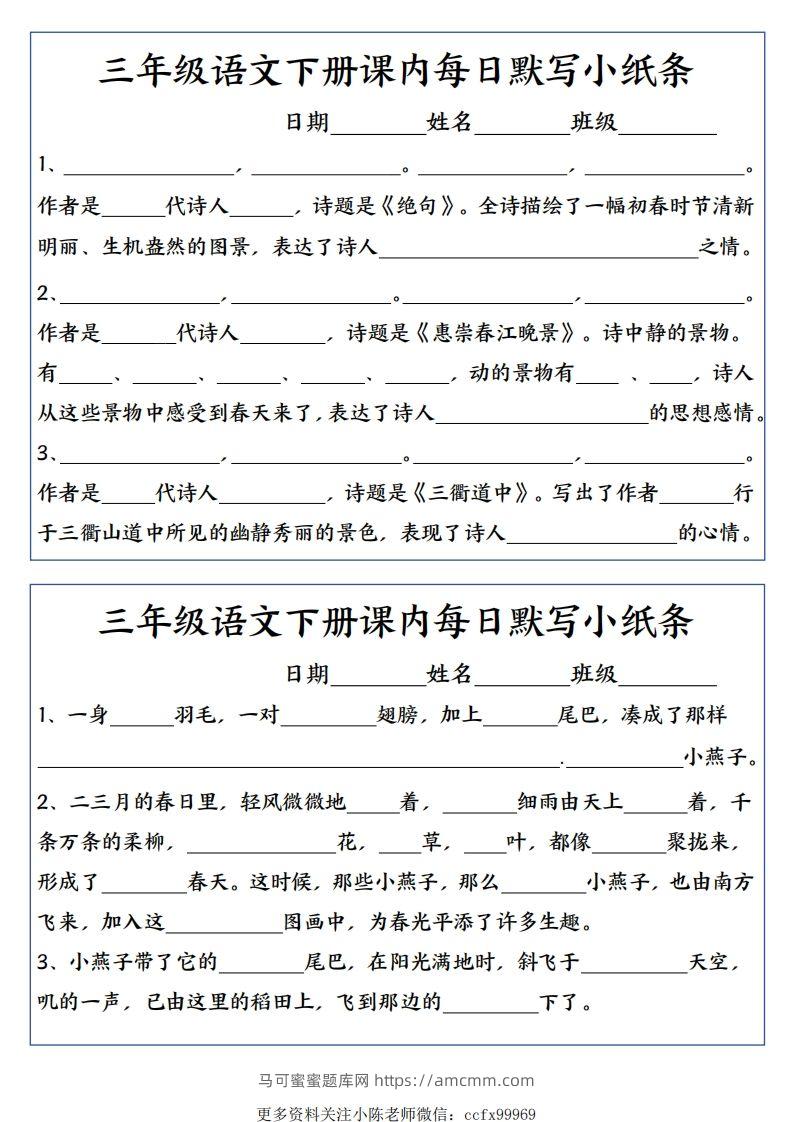 三年级语文下册课内每日默写小纸条
日期________姓名________班级________
1、________________，______________。______________，_______________。
作者是______代诗人______，诗题是《绝句》。全诗描绘了一幅初春时节清新
明丽、生机盎然的图景，表达了诗人______________________________之情。
2、_______________，_______________。________________，_______________。
作者是_______代诗人________，诗题是《惠崇春江晚景》。诗中静的景物。
有_____、______、______、______、______，动的景物有____ 、____，诗人
从这些景物中感受到春天来了，表达了诗人____________________的思想感情。
3、_______________，________________。_______________，_______________。
作者是_____代诗人__________，诗题是《三衢道中》。写出了作者_______行
于三衢山道中所见的幽静秀丽的景色，表现了诗人________________的心情。
三年级语文下册课内每日默写小纸条
日期________姓名________班级________
1、一身______羽毛，一对_________翅膀，加上_______尾巴，凑成了那样
_________________________________________________.___________小燕子。
2、二三月的春日里，轻风微微地_____着，_______细雨由天上______着，千
条万条的柔柳，______________花，____草，____叶，都像_______聚拢来，
形成了________春天。这时候，那些小燕子，那么________小燕子，也由南方
飞来，加入这___________图画中，为春光平添了许多生趣。
3、小燕子带了它的________尾巴，在阳光满地时，斜飞于__________天空，
叽的一声，已由这里的稻田上，飞到那边的_________下了。
马可蜜蜜题库网 https://amcmm.com
更多资料关注小陈老师微信：ccfx99969